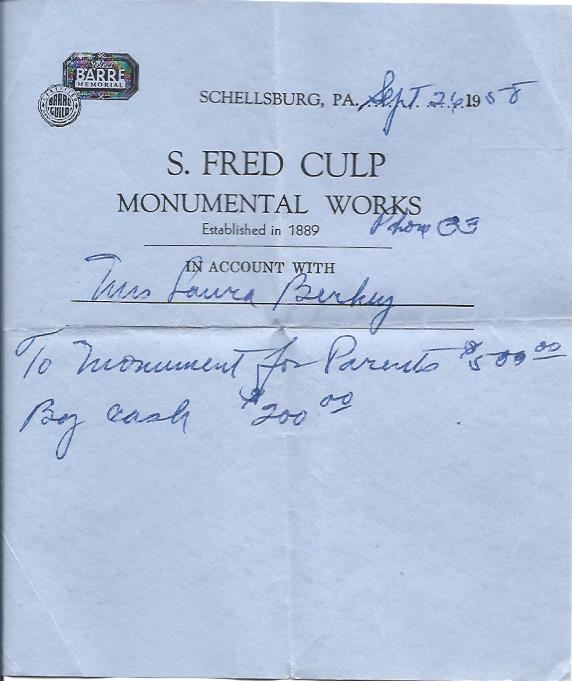 Select
BARRE
MEMORIAL
BARRE
GUILD
SCHELLSBURG, PA. Sept. 26 1958
S. FRED CULP
MONUMENTAL WORKS
Established in 1889
Phone 33
IN ACCOUNT WITH
Mrs Laura Berkey
To Monument for Parents $500.00
By cash $200.00